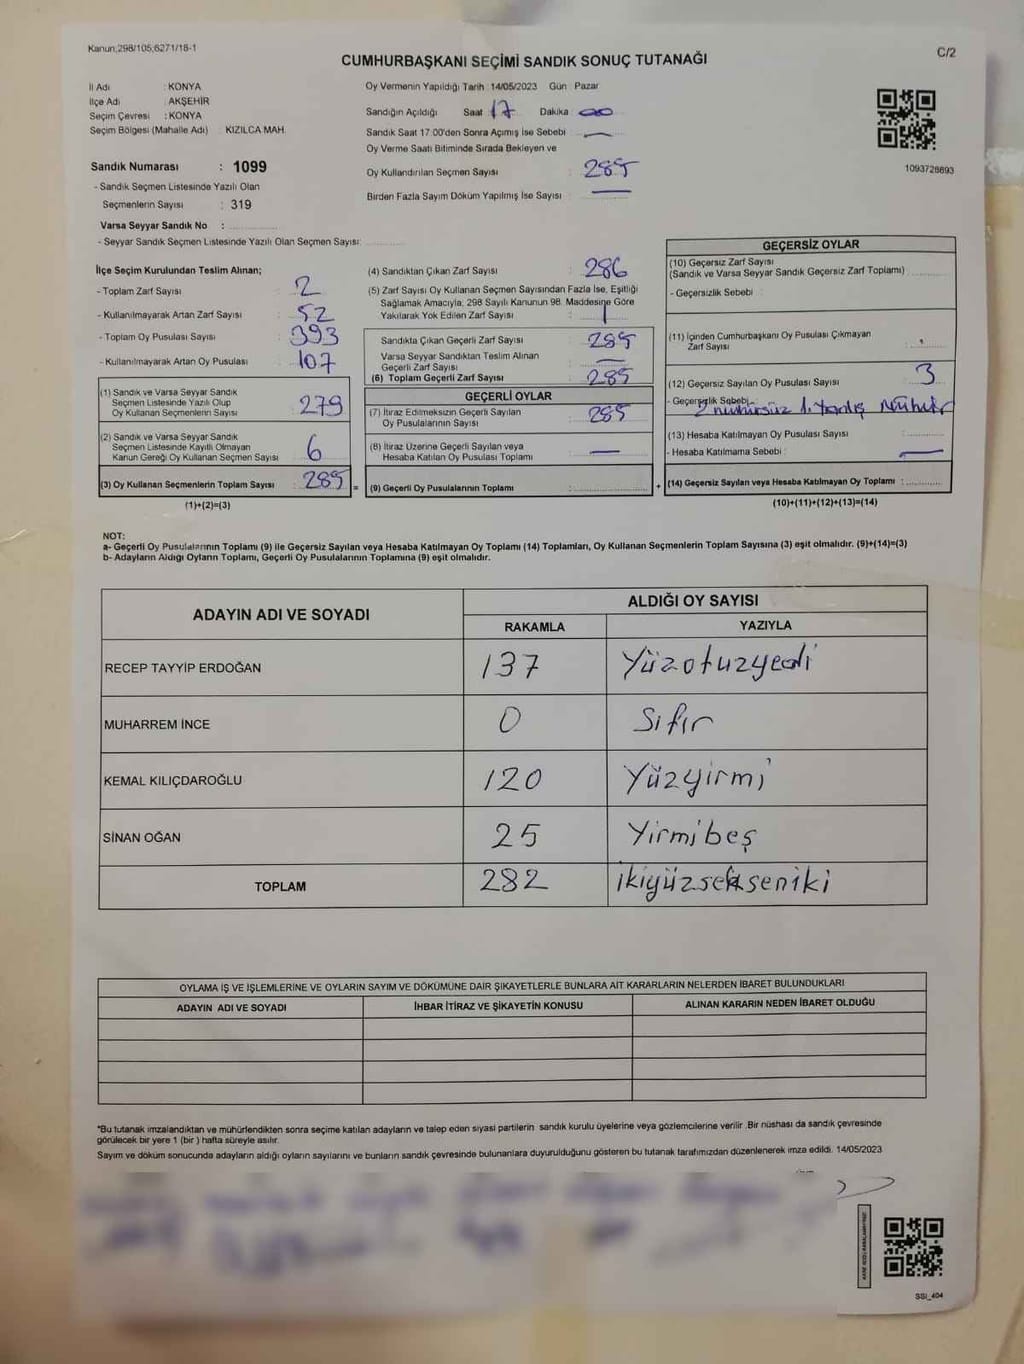 Kanun;298/105;6271/18-1
C/2
CUMHURBAŞKANI SEÇİMİ SANDIK SONUÇ TUTANAĞI
İl Adı : KONYA
İlçe Adı : AKŞEHİR
Seçim Çevresi : KONYA
Seçim Bölgesi (Mahalle Adı) : KIZILCA MAH.
Sandık Numarası : 1099
- Sandık Seçmen Listesinde Yazılı Olan
Seçmenlerin Sayısı : 319
Varsa Seyyar Sandık No :
- Seyyar Sandık Seçmen Listesinde Yazılı Olan Seçmen Sayısı:
Oy Vermenin Yapıldığı Tarih 14/05/2023 Gün Pazar
Sandığın Açıldığı Saat 17 Dakika 00
Sandık Saat 17:00'den Sonra Açımış İse Sebebi : —
Oy Verme Saati Bitiminde Sırada Bekleyen ve
Oy Kullandırılan Seçmen Sayısı : 285
Birden Fazla Sayım Döküm Yapılmış İse Sayısı : —
1093728893
İlçe Seçim Kurulundan Teslim Alınan;
- Toplam Zarf Sayısı : 2
- Kullanılmayarak Artan Zarf Sayısı : 52
- Toplam Oy Pusulası Sayısı : 393
- Kullanılmayarak Artan Oy Pusulası : 107
(1) Sandık ve Varsa Seyyar Sandık
Seçmen Listesinde Yazılı Olup
Oy Kullanan Seçmenlerin Sayısı : 279
(2) Sandık ve Varsa Seyyar Sandık
Seçmen Listesinde Kayıtlı Olmayan
Kanun Gereği Oy Kullanan Seçmen Sayısı : 6
(3) Oy Kullanan Seçmenlerin Toplam Sayısı : 285 =
(1)+(2)=(3)
(4) Sandıktan Çıkan Zarf Sayısı : 286
(5) Zarf Sayısı Oy Kullanan Seçmen Sayısından Fazla İse, Eşitliği
Sağlamak Amacıyla; 298 Sayılı Kanunun 98. Maddesine Göre
Yakılarak Yok Edilen Zarf Sayısı : 1
Sandıkta Çıkan Geçerli Zarf Sayısı : 285
Varsa Seyyar Sandıktan Teslim Alınan
Geçerli Zarf Sayısı : —
(6) Toplam Geçerli Zarf Sayısı : 285
GEÇERLİ OYLAR
(7) İtiraz Edilmeksizin Geçerli Sayılan
Oy Pusulasının Sayısı : 285
(8) İtiraz Üzerine Geçerli Sayılan veya
Hesaba Katılan Oy Pusulası Toplamı : —
(9) Geçerli Oy Pusulalarının Toplamı : +
GEÇERSİZ OYLAR
(10) Geçersiz Zarf Sayısı
(Sandık ve Varsa Seyyar Sandık Geçersiz Zarf Toplamı)
- Geçersizlik Sebebi :
(11) İçinden Cumhurbaşkanı Oy Pusulası Çıkmayan
Zarf Sayısı :
(12) Geçersiz Sayılan Oy Pusulası Sayısı : 3
- Geçersizlik Sebebi: 2 mühürsüz 1.
(13) Hesaba Katılmayan Oy Pusulası Sayısı :
- Hesaba Katılmama Sebebi : —
(14) Geçersiz Sayılan veya Hesaba Katılmayan Oy Toplamı :
(10)+(11)+(12)+(13)=(14)
NOT:
a- Geçerli Oy Pusulalarının Toplamı (9) ile Geçersiz Sayılan veya Hesaba Katılmayan Oy Toplamı (14) Toplamları, Oy Kullanan Seçmenlerin Toplam Sayısına (3) eşit olmalıdır. (9)+(14)=(3)
b- Adayların Aldığı Oyların Toplamı, Geçerli Oy Pusulalarının Toplamına (9) eşit olmalıdır.
ADAYIN ADI VE SOYADI ALDIĞI OY SAYISI
RAKAMLA YAZIYLA
RECEP TAYYİP ERDOĞAN 137 Yüzotuzyedi
MUHARREM İNCE 0 Sıfır
KEMAL KILIÇDAROĞLU 120 Yüzyirmi
SİNAN OĞAN 25 Yirmibeş
TOPLAM 282 ikiyüzsekseniki
OYLAMA İŞ VE İŞLEMLERİNE VE OYLARIN SAYIM VE DÖKÜMÜNE DAİR ŞİKAYETLERLE BUNLARA AİT KARARLARIN NELERDEN İBARET BULUNDUKLARI
ADAYIN ADI VE SOYADI İHBAR İTİRAZ VE ŞİKAYETİN KONUSU ALINAN KARARIN NEDEN İBARET OLDUĞU
*Bu tutanak imzalandıktan ve mühürlendikten sonra seçime katılan adayların ve talep eden siyasi partilerin sandık kurulu üyelerine veya gözlemcilerine verilir .Bir nüshası da sandık çevresinde
görülecek bir yere 1 (bir ) hafta süreyle asılır.
Sayım ve döküm sonucunda adayların aldığı oyların sayılarını ve bunların sandık çevresinde bulunanlara duyurulduğunu gösteren bu tutanak tarafımızdan düzenlenerek imza edildi. 14/05/2023
SSI_404